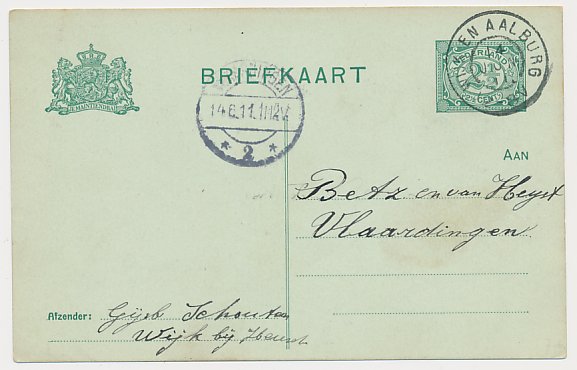 JE MAINTIENDRAI
BRIEFKAART
EN AALBURG
NEDERLAND
2½
14.6.11.
2
AAN
Betz en van Heyst
Vlaardingen
Afzender: Gijsb Schouten
Wijk bij Heusd